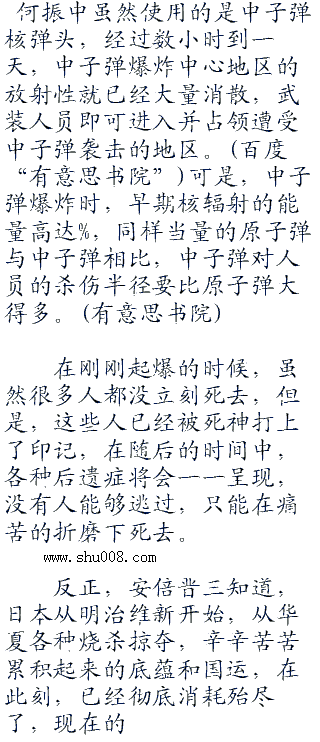 何振中虽然使用的是中子弹
核弹头，经过数小时到一
天，中子弹爆炸中心地区的
放射性就已经大量消散，武
装人员即可进入并占领遭受
中子弹袭击的地区。(百度
“有意思书院”)可是，中子
弹爆炸时，早期核辐射的能
量高达%，同样当量的原子弹
与中子弹相比，中子弹对人
员的杀伤半径要比原子弹大
得多。(有意思书院)
在刚刚起爆的时候，虽
然很多人都没立刻死去，但
是，这些人已经被死神打上
了印记，在随后的时间中，
各种后遗症将会一一呈现，
没有人能够逃过，只能在痛
苦的折磨下死去。
www.shu008.com
反正，安倍晋三知道，
日本从明治维新开始，从华
夏各种烧杀掠夺，辛辛苦苦
累积起来的底蕴和国运，在
此刻，已经彻底消耗殆尽
了，现在的